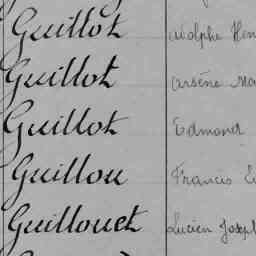 Guillot Adolphe Hen
Guillot Arsène Ma
Guillot Edmond
Guillou Francis E
Guillouet Lucien Joseph